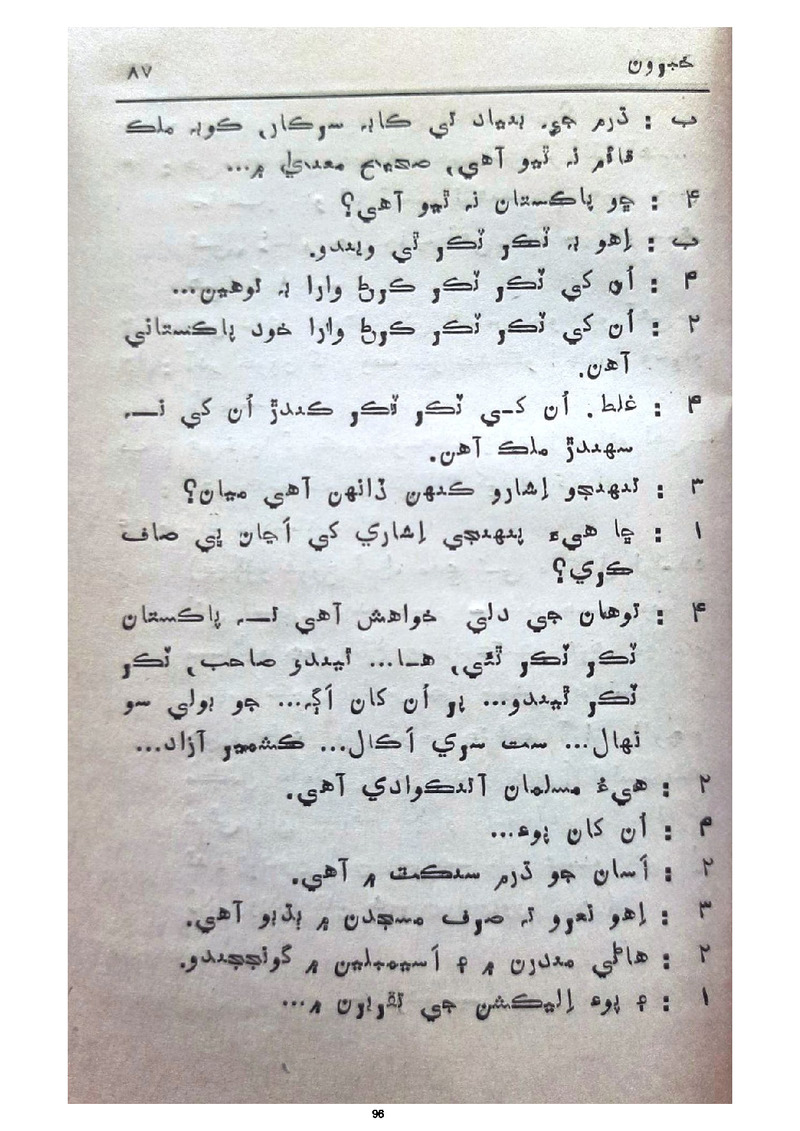 خبرون ٨٧
ب : ڌرم جي بنياد تي ڪابہ سرڪار، ڪوبہ ملڪ
قائم نہ ٿيو آهي، صحيح معنيٰ ۾...
۴ : ڇو پاڪستان نہ ٿيو آهي؟
ب : اِهو بہ ٽڪر ٽڪر ٿي ويندو.
۴ : اُن کي ٽڪر ٽڪر ڪرڻ وارا بہ توهين...
۲ : اُن کي ٽڪر ٽڪر ڪرڻ وارا خود پاڪستاني
آهن.
۴ : غلط. اُن کــي ٽڪر ٽڪر ڪندڙ اُن کي نــہ
سهندڙ ملڪ آهن.
۳ : تنهنجو اِشارو ڪنهن ڏانهن آهي ميان؟
۱ : ڇا هيءَ پنهنجي اِشاري کي اَڃان پي صاف
ڪري؟
۴ : توهان جي دلي خواهش آهي تــہ پاڪستان
ٽڪر ٽڪر ٿئي، هــا... ٿيندو صاحب، ٽڪر
ٽڪر ٿيندو... پر اُن کان اَڳہ... جو ٻولي سو
نهال... ست سري اَڪال... ڪشمير آزاد...
۲ : هيءُ مسلمان آتنڪوادي آهي.
۴ : اُن کان پوءِ...
۲ : اَسان جو ڌرم سنڪٽ ۾ آهي.
۳ : اِهو نعرو تہ صرف مسجدن ۾ ٻڌبو آهي.
۲ : هاڻي مندرن ۾ ۽ اَسيمبلين ۾ گونججندو.
۱ : ۽ پوءِ اِليڪشن جي تقريرن ۾...
96